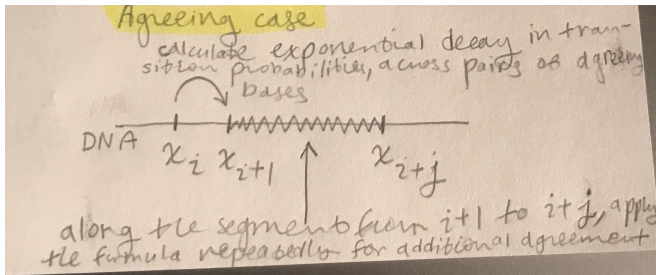 Agreeing case
calculate exponential decay in tran-
sition probabilities, across pairs of agreeing
bases
DNA
x_i x_{i+1} x_{i+j}
along the segment from i+1 to i+j, apply
the formula repeatedly for additional agreement